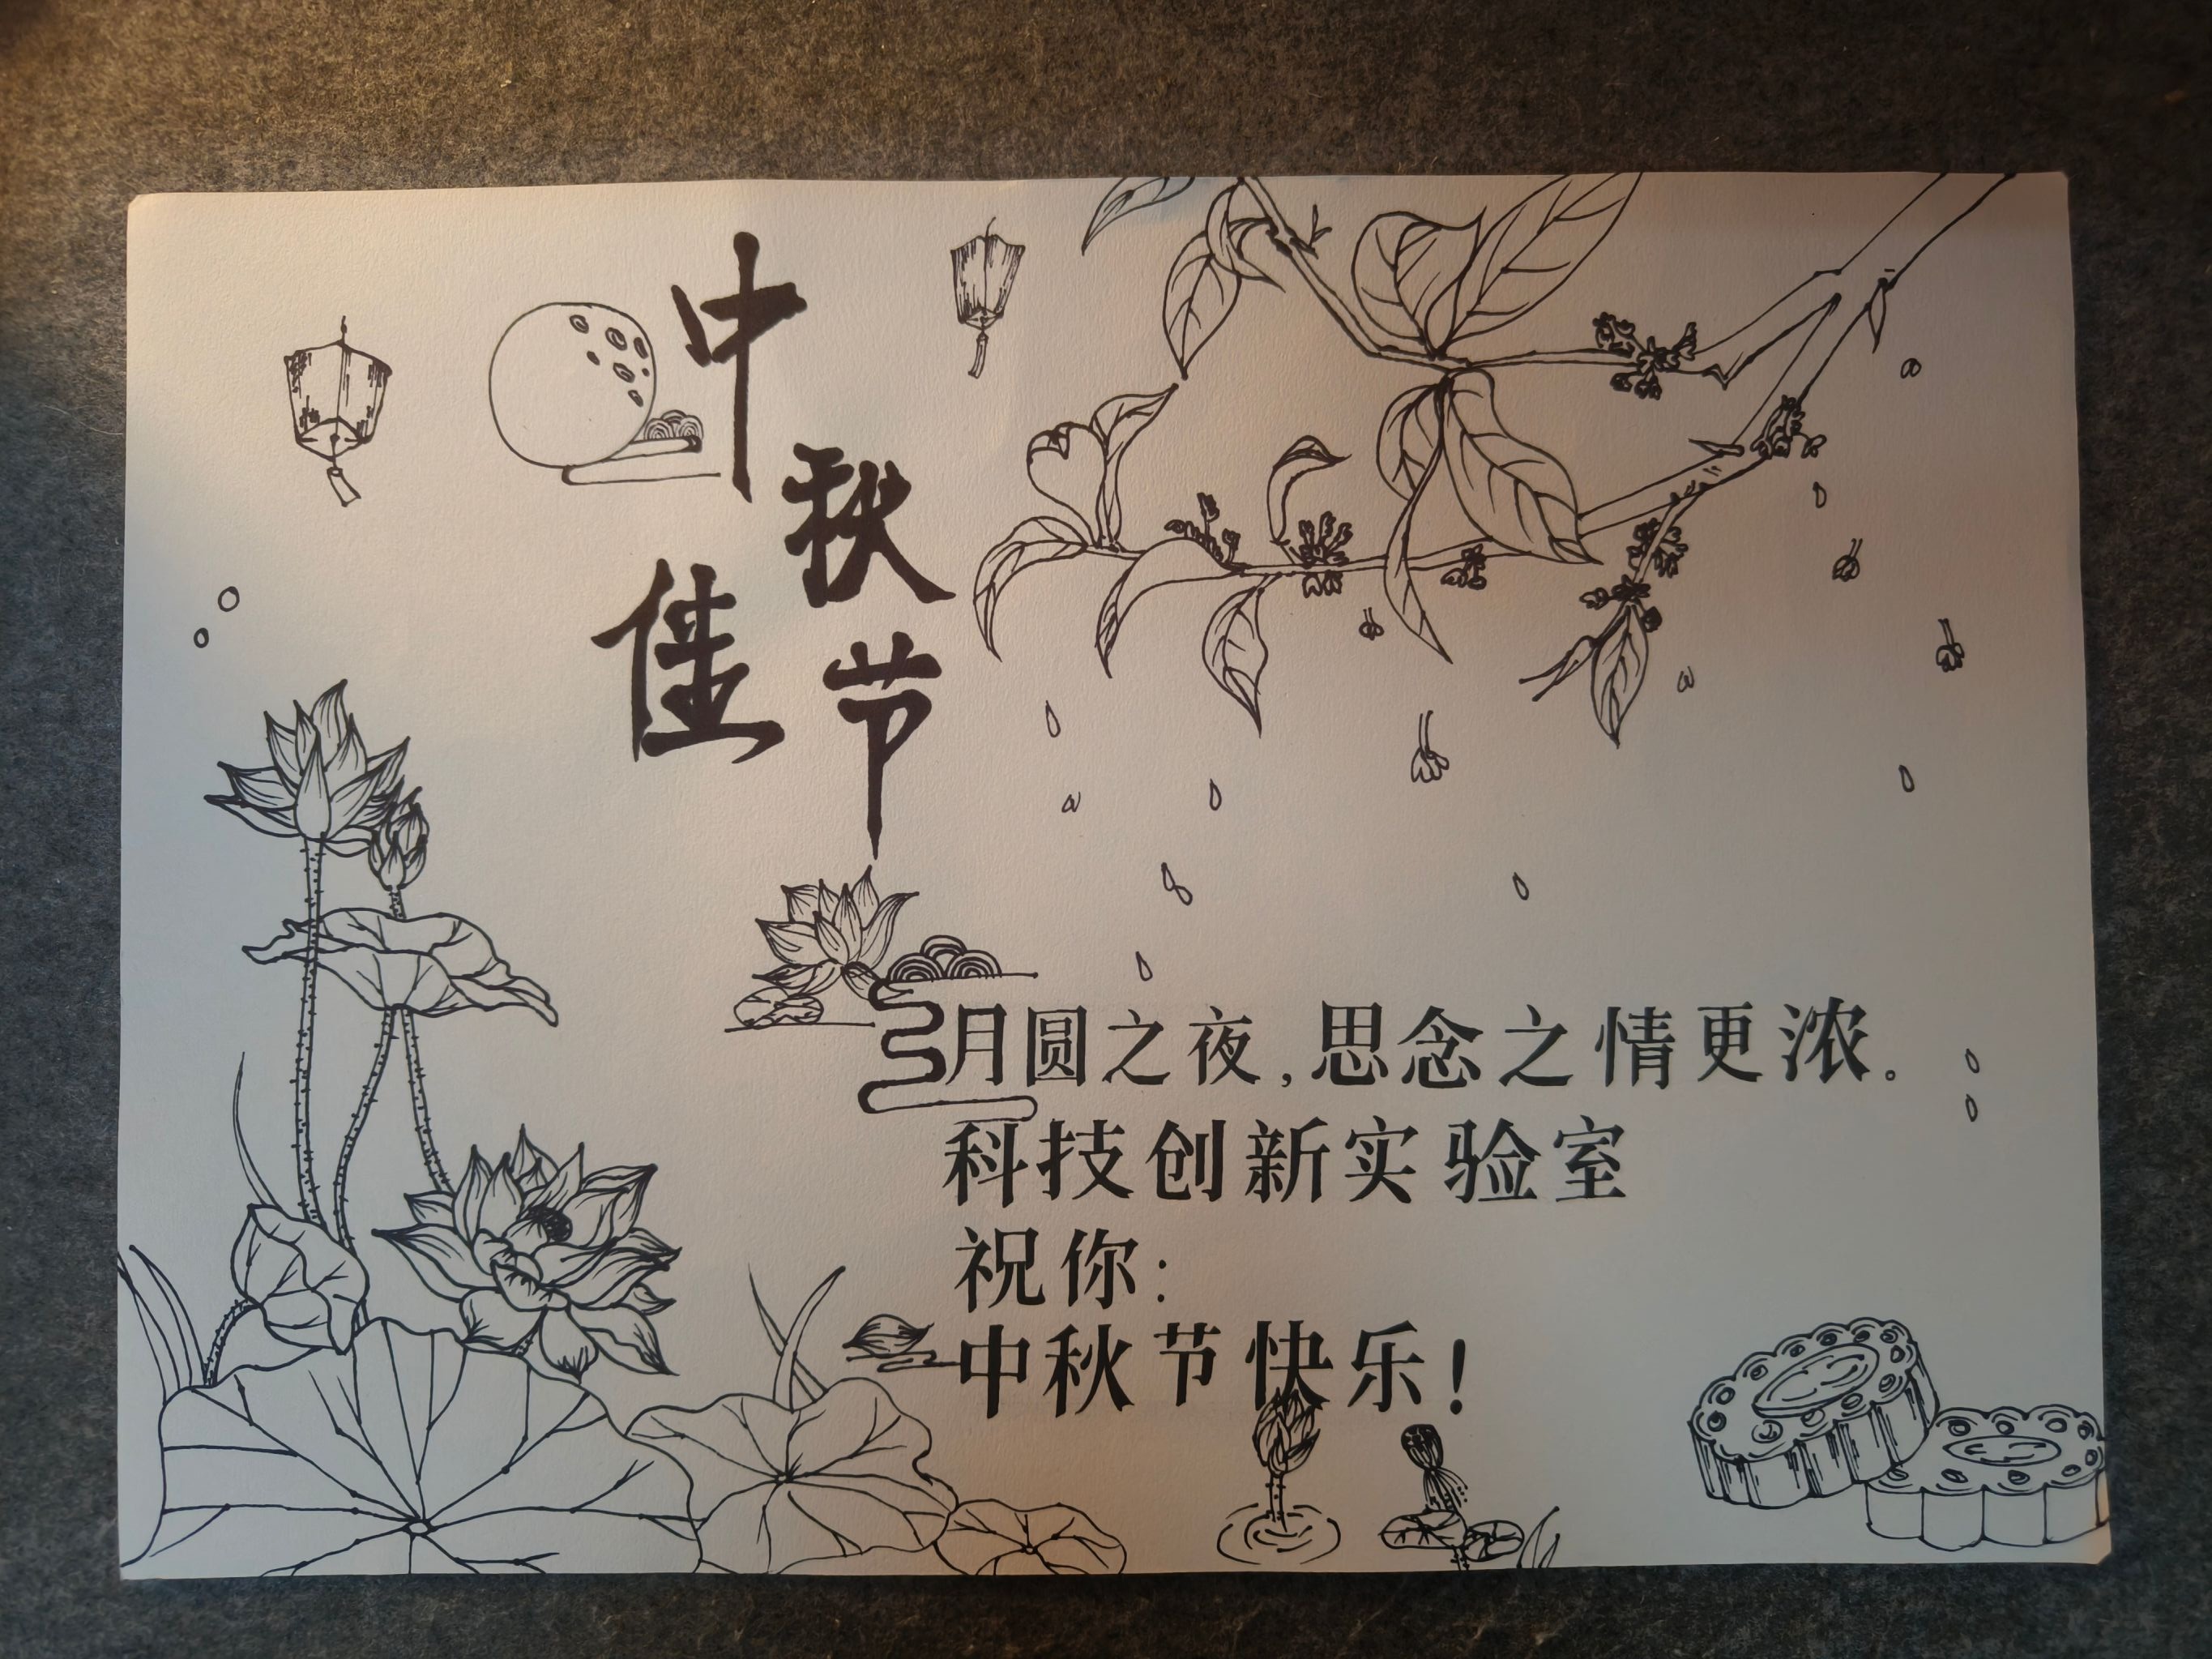 中秋佳节
月圆之夜,思念之情更浓。
科技创新实验室
祝你:
中秋节快乐!